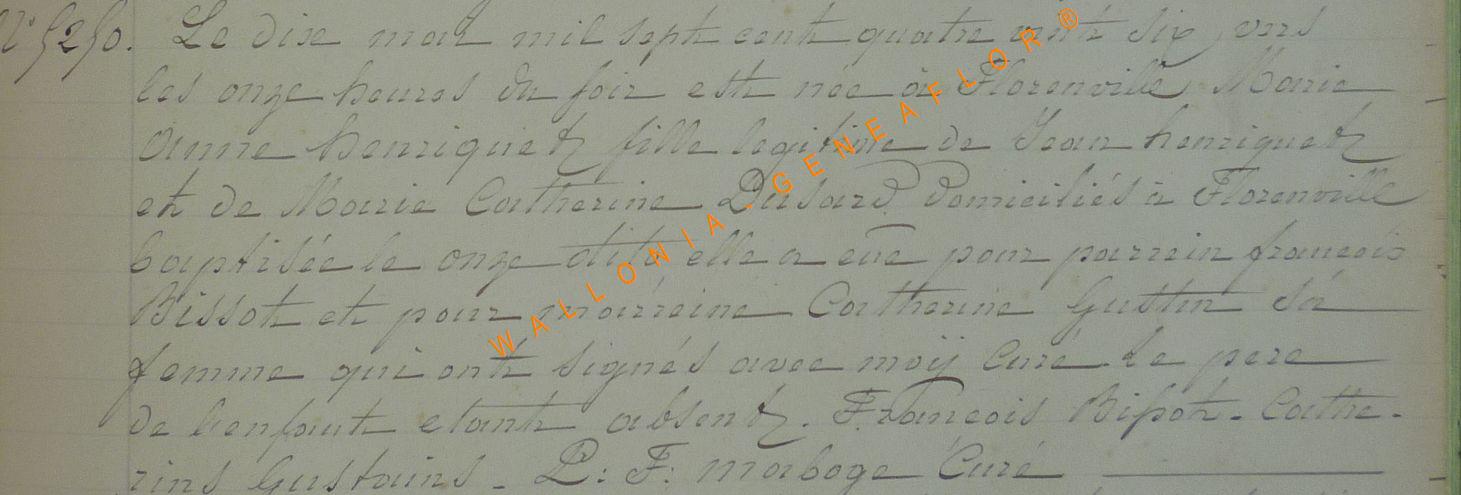 N° 5250. Le dix mai mil sept cent quatre vint six, vers
les onze heures du soir est née à Florenville Marie
Anne henriquet fille legitime de Jean henriquet
et de Marie Catherine Dusard domiciliés à Florenville
baptisée le onze dito elle a eue pour parrein francois
Bissot et pour marreine Catherine Gustin sa
femme qui ont signés avec moÿ Curé le pere
de lenfant etant absent. Francois Bissot - Cathe-
rins Gustains - P: F: maboge Curé
WALLONIA - GENEAFLOR ®